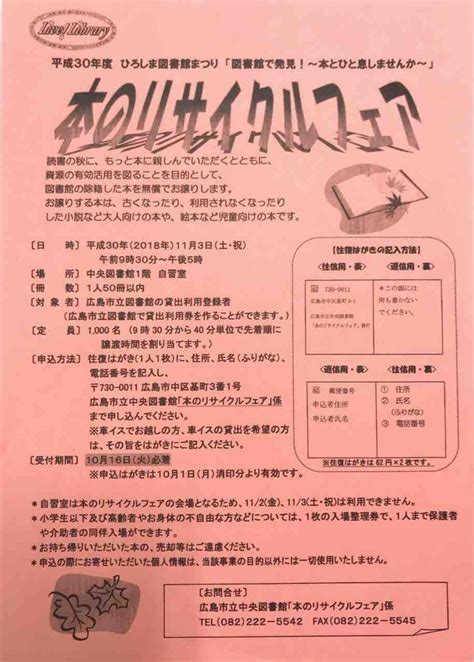 Live! Library
平成30年度 ひろしま図書館まつり「図書館で発見！～本とひと息しませんか～」
本のリサイクルフェア
読書の秋に、もっと本に親しんでいただくとともに、
資源の有効活用を図ることを目的として、
図書館の除籍した本を無償でお譲りします。
お譲りする本は、古くなったり、利用されなくなったり
した小説など大人向けの本や、絵本など児童向けの本です。
〔日　時〕平成30年(2018年)11月3日(土・祝)
午前9時30分～午後5時
〔場　所〕中央図書館1階 自習室
〔冊　数〕1人50冊以内
〔対 象 者〕広島市立図書館の貸出利用登録者
(広島市立図書館で貸出利用券を作ることができます。)
〔定　員〕1,000名（9時30分から40分単位で先着順に
譲渡時間を割り当てます。）
〔申込方法〕往復はがき(1人1枚)に、住所、氏名(ふりがな)、
電話番号を記入し、
〒730-0011 広島市中区基町3番1号
広島市立中央図書館「本のリサイクルフェア」係
まで申し込んでください。
※車イスでお越しの方、車イスの貸出を希望の方
は、その旨をはがきにご記入ください。
〔受付期間〕10月16日(火)必着
※申込はがきは10月1日(月)消印分より有効です。
【往復はがきの記入方法】
<往信用・表>
<返信用・裏>
730-0011
広島市中区基町3-1
広島市立中央図書館
「本のリサイクルフェア」係行
*この面には
何も書かない
でください。
<返信用・表>
<往信用・裏>
郵便番号
申込者住所
申込者氏名
① 住所
② 氏名
(ふりがな)
③ 電話番号
※往復はがきは62円×2枚です。
*自習室は本のリサイクルフェアの会場となるため、11/2(金)、11/3(土・祝)は利用できません。
*小学生以下及び高齢者やお身体の不自由な方などについては、1枚の入場整理券で、1人まで保護者
や介助者の同伴入場ができます。
*お持ち帰りいただいた本の、売却等はご遠慮ください。
*申込の際にお寄せいただいた個人情報は、当該事業の目的以外には一切使用いたしません。
〔お問合せ〕
広島市立中央図書館「本のリサイクルフェア」係
TEL(082)222-5542 FAX(082)222-5545